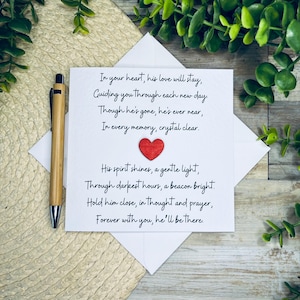 In your heart, his love will stay,
Guiding you through each new day.
Though he's gone, he's ever near,
In every memory, crystal clear.
His spirit shines, a gentle light,
Through darkest hours, a beacon bright.
Hold him close, in thought and prayer,
Forever with you, he'll be there.